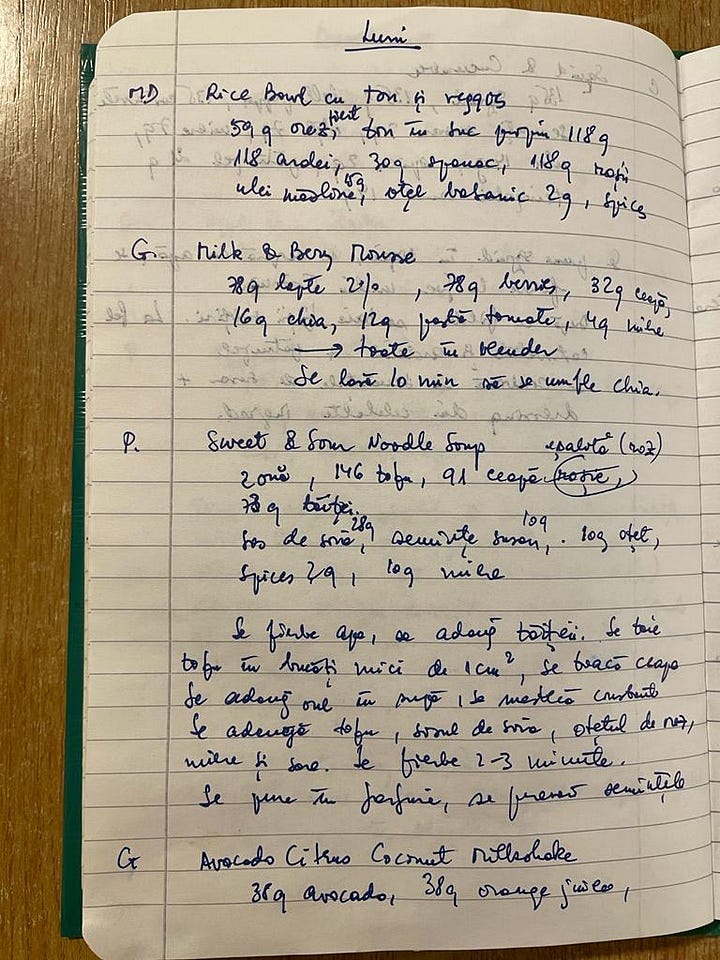 Luni
MD Rice Bowl cu ton și veggos
59g orez fiert, ton în suc propriu 118g
118 ardei, 30g spanac, 118g roșii
ulei măsline, 15g, oțet balsamic 2g, spices
G. Milk & Berry Mousse
78g lapte 2%, 78g berries, 32g
16g chia, 12g pastă tomate, 4g miere
→ toate în blender
Se lasă 10 min să se umfle chia.
P. Sweet & Sour Noodle Soup eșalotă (roz)
2 ouă, 146 tofu, 91 ceapă roșie,
78g tăiței.
Sos de soia, 28g semințe susan, 10g . 10g oțet,
Spices 2g, 10g miere
Se fierbe apa, se adaug tăiței. Se taie
tofu în bucăți mici de 1cm², se toacă ceapa
Se adaug oul în supă, se mestecă constant
Se adaugă tofu, sosul de soia, oțetul de rez,
miere și sare. Se fierbe 2-3 minute.
Se pune în farfurie, se presară semințele
G Avocado Citrus Coconut Milkshake
38g avocado, 38g orange juice,